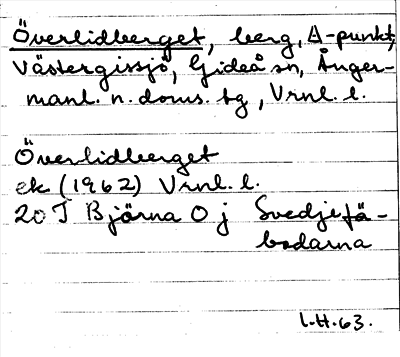 Överlidberget, berg, Δ-punkt,
Västergissjö, Gideå sn, Ånger-
manl. n. doms. tg, Vrnl. l.
Överlidberget
ek (1962) Vrnl. l.
20 J Björna O j Svedjefä-
bodarna
L.H.63.